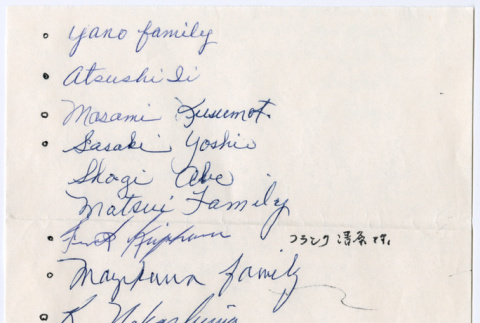 yano family
Atsushi Ii
Masami Kusumoto
Sasaki Yoshio
Shogi Abe
Matsui Family
フランク
family
K Nakashima